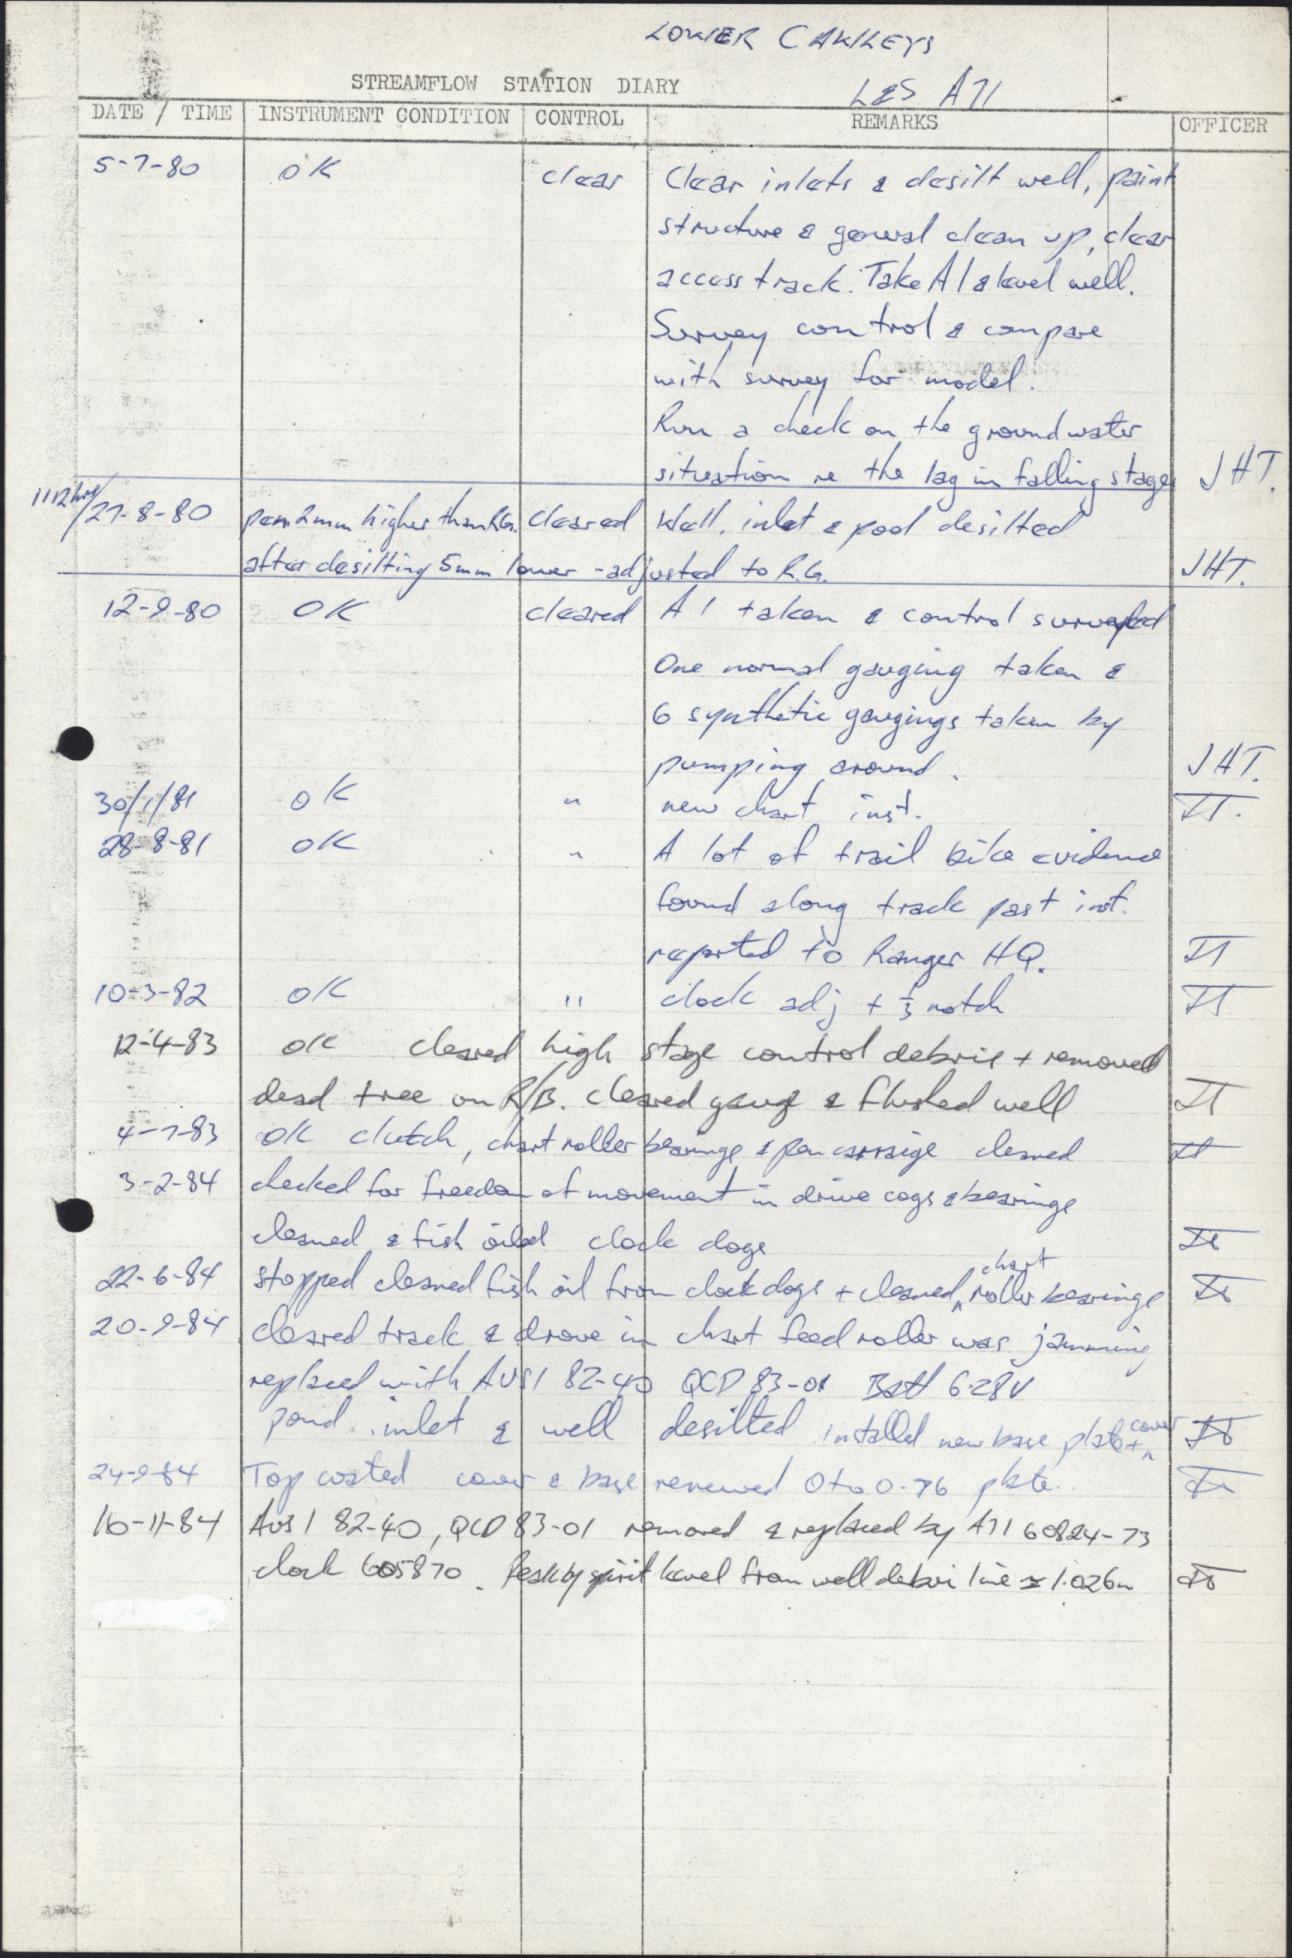 LOWER CAWLEYS
STREAMFLOW STATION DIARY
L&S A71
DATE / TIME INSTRUMENT CONDITION CONTROL REMARKS OFFICER
5-7-80 OK clear Clear inlets & desilt well, paint
structure & general clean up, clear
access track. Take A1 & level well.
Survey control & compare
with survey for model.
Run a check on the groundwater
situation re the lag in falling stage JHT.
1112hrs/27-8-80 pen 2mm higher than R.G. cleared Well, inlet & pool desilted
after desilting 5mm lower - adjusted to R.G. JHT.
12-9-80 OK cleared A1 taken & control surveyed
One normal gauging taken &
6 synthetic gaugings taken by
pumping around. JHT.
30/1/81 OK " new chart inst.
28-8-81 OK " A lot of trail bike evidence
found along track past inst.
reported to Ranger HQ.
10-3-82 OK " clock adj + 1/3 notch
12-4-83 OK cleared high stage control debris + removed
dead tree on R/B. cleared gauge & flushed well
4-7-83 OK clutch, chart roller bearings & pen carraige cleaned
3-2-84 checked for freedom of movement in drive cogs & bearings
cleaned & fish oiled clock dogs
22-6-84 stopped cleaned fish oil from clock dogs + cleaned chart roller bearings
20-9-84 cleared track & drove in chart feed roller was jamming
replaced with AUS1 82-40 QCD 83-01 Batt 6.28V
pond inlet & well desilted installed new base plate + cover
24-9-84 Top coated cover & base renewed 0 to 0.76 plate.
16-11-84 Aus 1 82-40, QCD 83-01 removed & replaced by A71 60824-73
clock 605870. Peak by spirit level from well debri line ≈ 1.026m